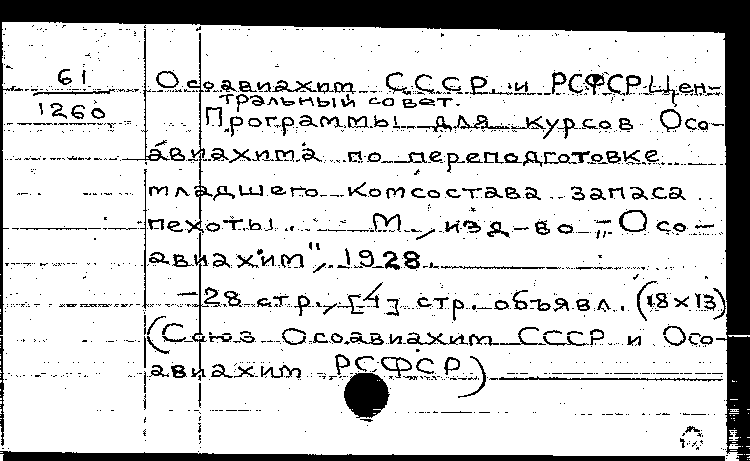 61
1260
Осоавиахим СССР и РСФСР Цен-
тральный совет.
Программы для курсов Осо-
авиахима по переподготовке
младшего комсостава запаса
пехоты. М., изд-во „Осо-
авиахим", 1928.
—28 стр., [4] стр. объявл. (18х13)
(Союз Осоавиахим СССР и Осо-
авиахим РСФСР)